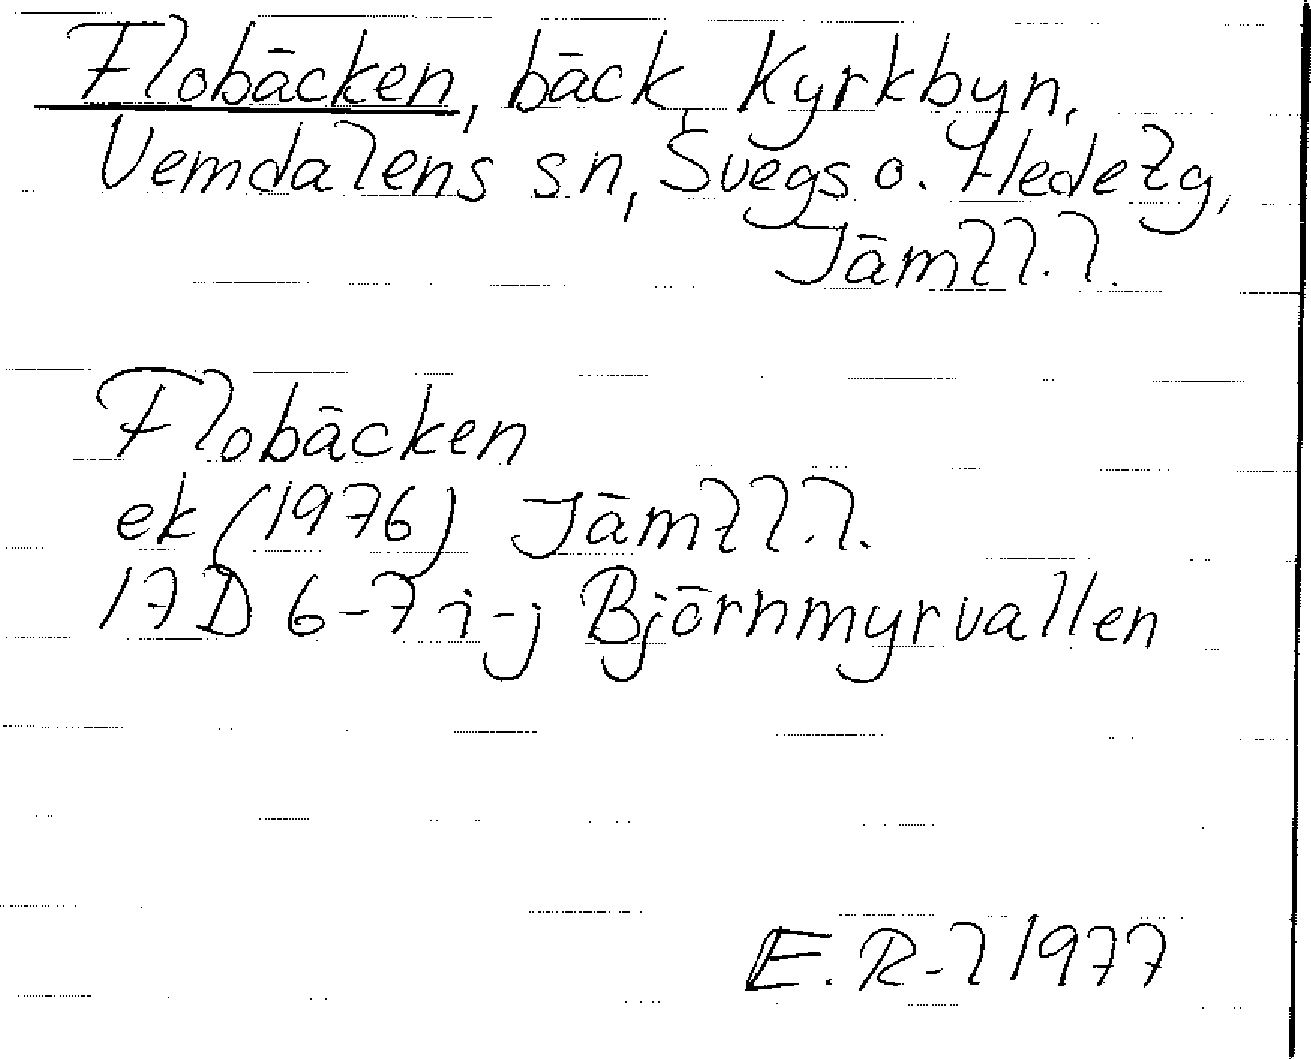 Flobäcken, bäck, Kyrkbyn,
Vemdalens sn, Svegs o. Hede tg,
Jämtl.l.
Flobäcken
ek (1976) Jämtl.l.
17D 6-7 i-j Björnmyrvallen
E.R-l 1977